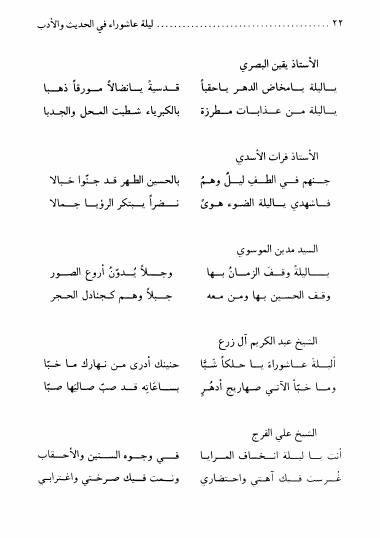 ٢٢ ........................................ ليلة عاشوراء في الحديث والأدب
الأستاذ يقين البصري
يـاليلة يـامخاض الدهـر يـاحقباً قـدسيةً يـانضالاً مـورقاً ذهـبا
يـاليلة مـن عـذابـات مـطرزة بالكبرياء شـطبت المـحل والجـدبا
الأستاذ فرات الأسدي
جـنهم فـي الطـف ليـلٌ وهـمُ بالحسين الطـهر قـد جـنّوا خـبالا
فـاشهدي يـاليلة الضـوء هـوىً نـضراً يـبتكر الرؤيـا جـمالا
السيد مدين الموسوي
يـا ليلةً وقـفَ الزمـانُ بـها وجـلاً يُـدوّنُ أروع الصـور
وقـف الحسـين بـها ومـن معه جـبلاً وهـم كـجنادل الحجر
الشيخ عبد الكريم آل زرع
أليلةَ عـاشوراءَ يـا حـلكاً شَبَّا حنينك أدرى مـن نـهارك ما خـبّا
ومـا خـبّأ الآتـي صـهاريج أدهُـرٍ بسـاعَاتِه قـد صبّ صاليَها صبّا
الشيخ علي الفرج
أنت يـا ليلة انـخساف المرايـا فـي وجـوه السـنين والأحقاب
غُـرست فـيك آهـتي واحتضاري ونـمت فـيك صـرختي واغترابي